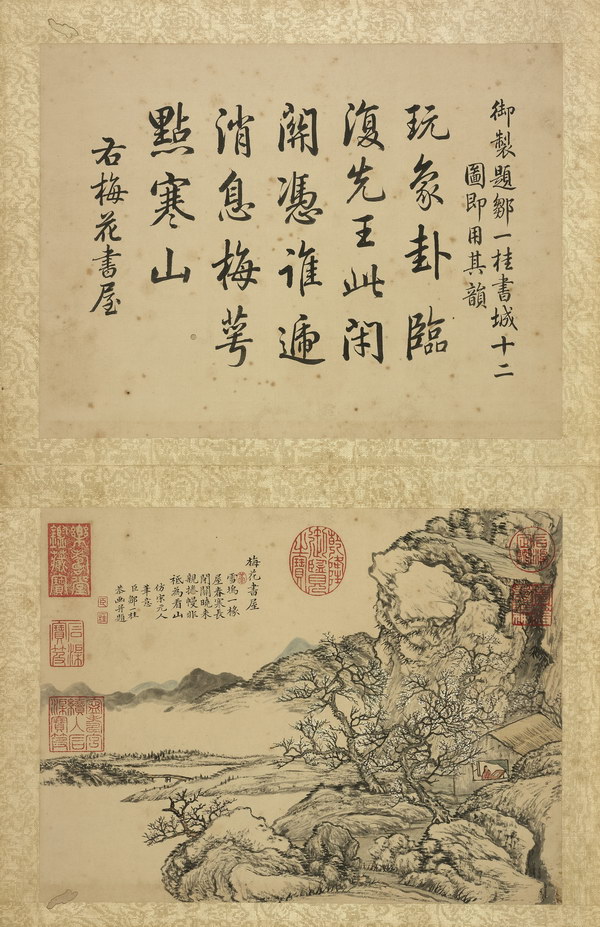 御製題鄒一桂書城十二
圖即用其韻
玩象卦臨
復先王此閉
關憑誰遞
消息梅萼
點寒山
右梅花書屋
梅花書屋
雪塢一椽
屋春寒長
閉關曉來
觀捲幔非
秪為看山
仿宋元人
筆意
臣鄒一桂
恭畫并題
乾隆御覽之寶
石渠寶笈